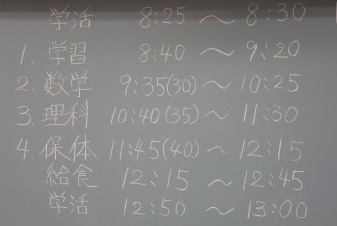 学活 8:25 〜 8:30
1. 学習 8:40 〜 9:20
2. 数学 9:35(30) 〜 10:25
3. 理科 10:40(35) 〜 11:30
4. 保体 11:45(40) 〜 12:15
給食 12:15 〜 12:45
学活 12:50 〜 13:00